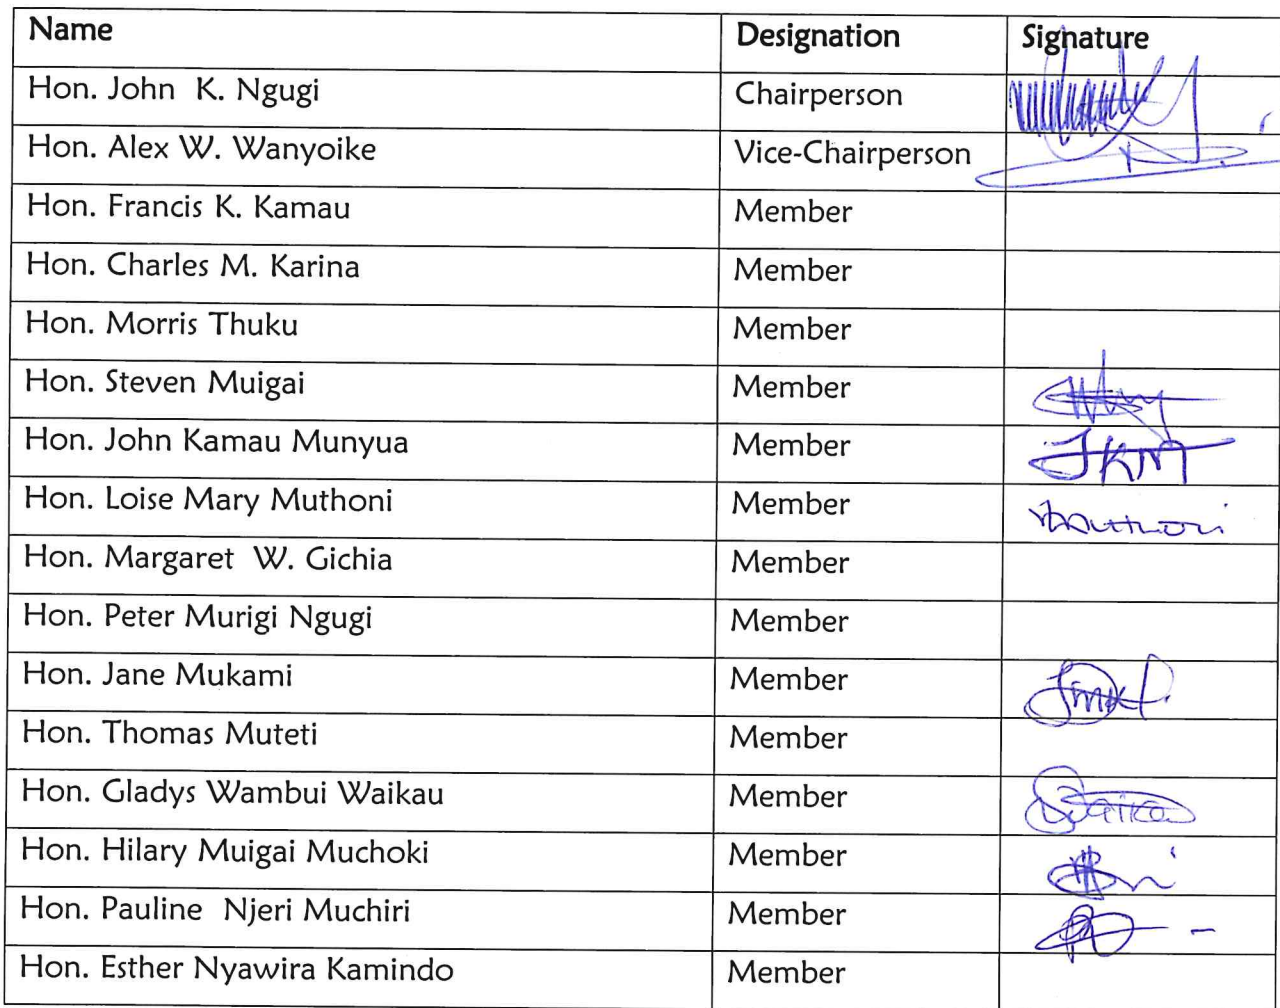 Name Designation Signature
Hon. John K. Ngugi Chairperson
Hon. Alex W. Wanyoike Vice-Chairperson
Hon. Francis K. Kamau Member
Hon. Charles M. Karina Member
Hon. Morris Thuku Member
Hon. Steven Muigai Member
Hon. John Kamau Munyua Member JKM
Hon. Loise Mary Muthoni Member
Hon. Margaret W. Gichia Member
Hon. Peter Murigi Ngugi Member
Hon. Jane Mukami Member
Hon. Thomas Muteti Member
Hon. Gladys Wambui Waikau Member
Hon. Hilary Muigai Muchoki Member
Hon. Pauline Njeri Muchiri Member
Hon. Esther Nyawira Kamindo Member